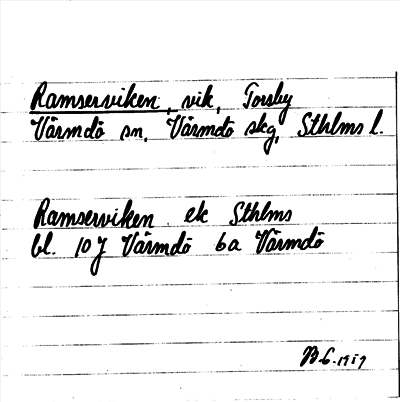 Ramserviken, vik, Torsby
Värmdö sn, Värmdö skg, Sthlms l.
Ramserviken ek Sthlms
bl. 10 J Värmdö 6a Värmdö